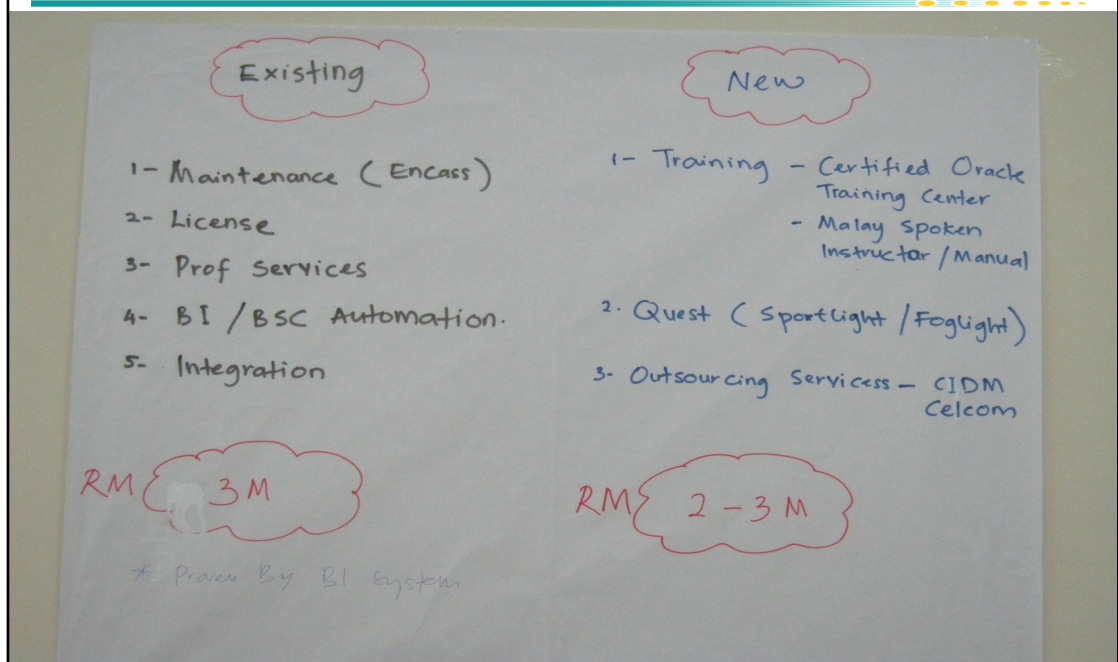 Existing
1- Maintenance (Encass)
2- License
3- Prof Services
4- BI / BSC Automation.
5- Integration
RM 3M
* Proven By BI System
New
1- Training - Certified Oracle
Training Center
- Malay Spoken
Instructor / Manual
2. Quest (Sportlight / Foglight)
3- Outsourcing Servicess - CIDM
Celcom
RM 2 - 3 M